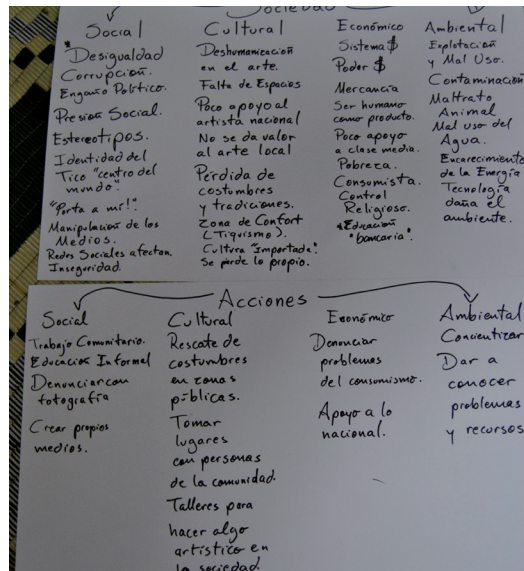 Sociedad
Social
*Desigualdad
Corrupción.
Engaño Político.
Presion Social.
Estereotipos.
Identidad del
Tico "centro del
mundo".
"Porta a mi!".
Manipulación de los
Medios.
Redes Sociales afectan.
Inseguridad.
Cultural
Deshumanización
en el arte.
Falta de Espacios
Poco apoyo al
artista nacional
No se da valor
al arte local
Perdida de
costumbres
y tradiciones.
Zona de Confort
(Tiquismo).
Cultura "Importada".
Se pierde lo propio.
Económico
Sistema $
Poder $
Mercancia
Ser humano
como producto.
Poco apoyo
a clase media.
Pobreza.
Consumista.
Control
Religioso.
*Educación
"bancaria".
Ambiental
Explotación
y Mal Uso.
Contaminación
Maltrato
Animal
Mal uso del
Agua.
Encarecimiento
de la Energía
Tecnología
daña el
ambiente.
Acciones
Social
Trabajo Comunitario.
Educación Informal
Denunciar con
fotografía
Crear propios
medios.
Cultural
Rescate de
costumbres
en zonas
públicas.
Tomar
lugares
con personas
de la comunidad.
Talleres para
hacer algo
artístico en
la sociedad.
Económico
Denunciar
problemas
del consumismo.
Apoyo a lo
nacional.
Ambiental
Concientizar
Dar a
conocer
problemas
y recursos